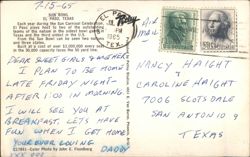 7-15-65
SUN BOWL
EL PASO, TEXAS
Each year during the Sun Carnival Celebration,
El Paso plays host to two of the outstanding
teams of the nation in the oldest bowl game in
Texas and the third oldest in the U.S.
From the Sun Bowl can be seen two nations
and three states.
Built at a cost of over $2,000,000 every seat
in the 30,000 capacity faces the 50 yard line.
EL PASO
PM
1965
TEX.
AIR
MAIL
DEAR SWEET GIRLS & MOTHER
I PLAN TO BE HOME
LATE FRIDAY NIGHT-
AFTER 11:00 IN MORNING.
I WILL SEE YOU AT
BREAKFAST. LETS HAVE
FUN WHEN I GET HOME
YOUR EVER LOVING
DADDY
NANCY HAIGHT
&
CAROLINE HAIGHT
7006 SCOTSDALE
SAN ANTONIO 9
TEXAS
Color Photo by John E. Fhonsberg